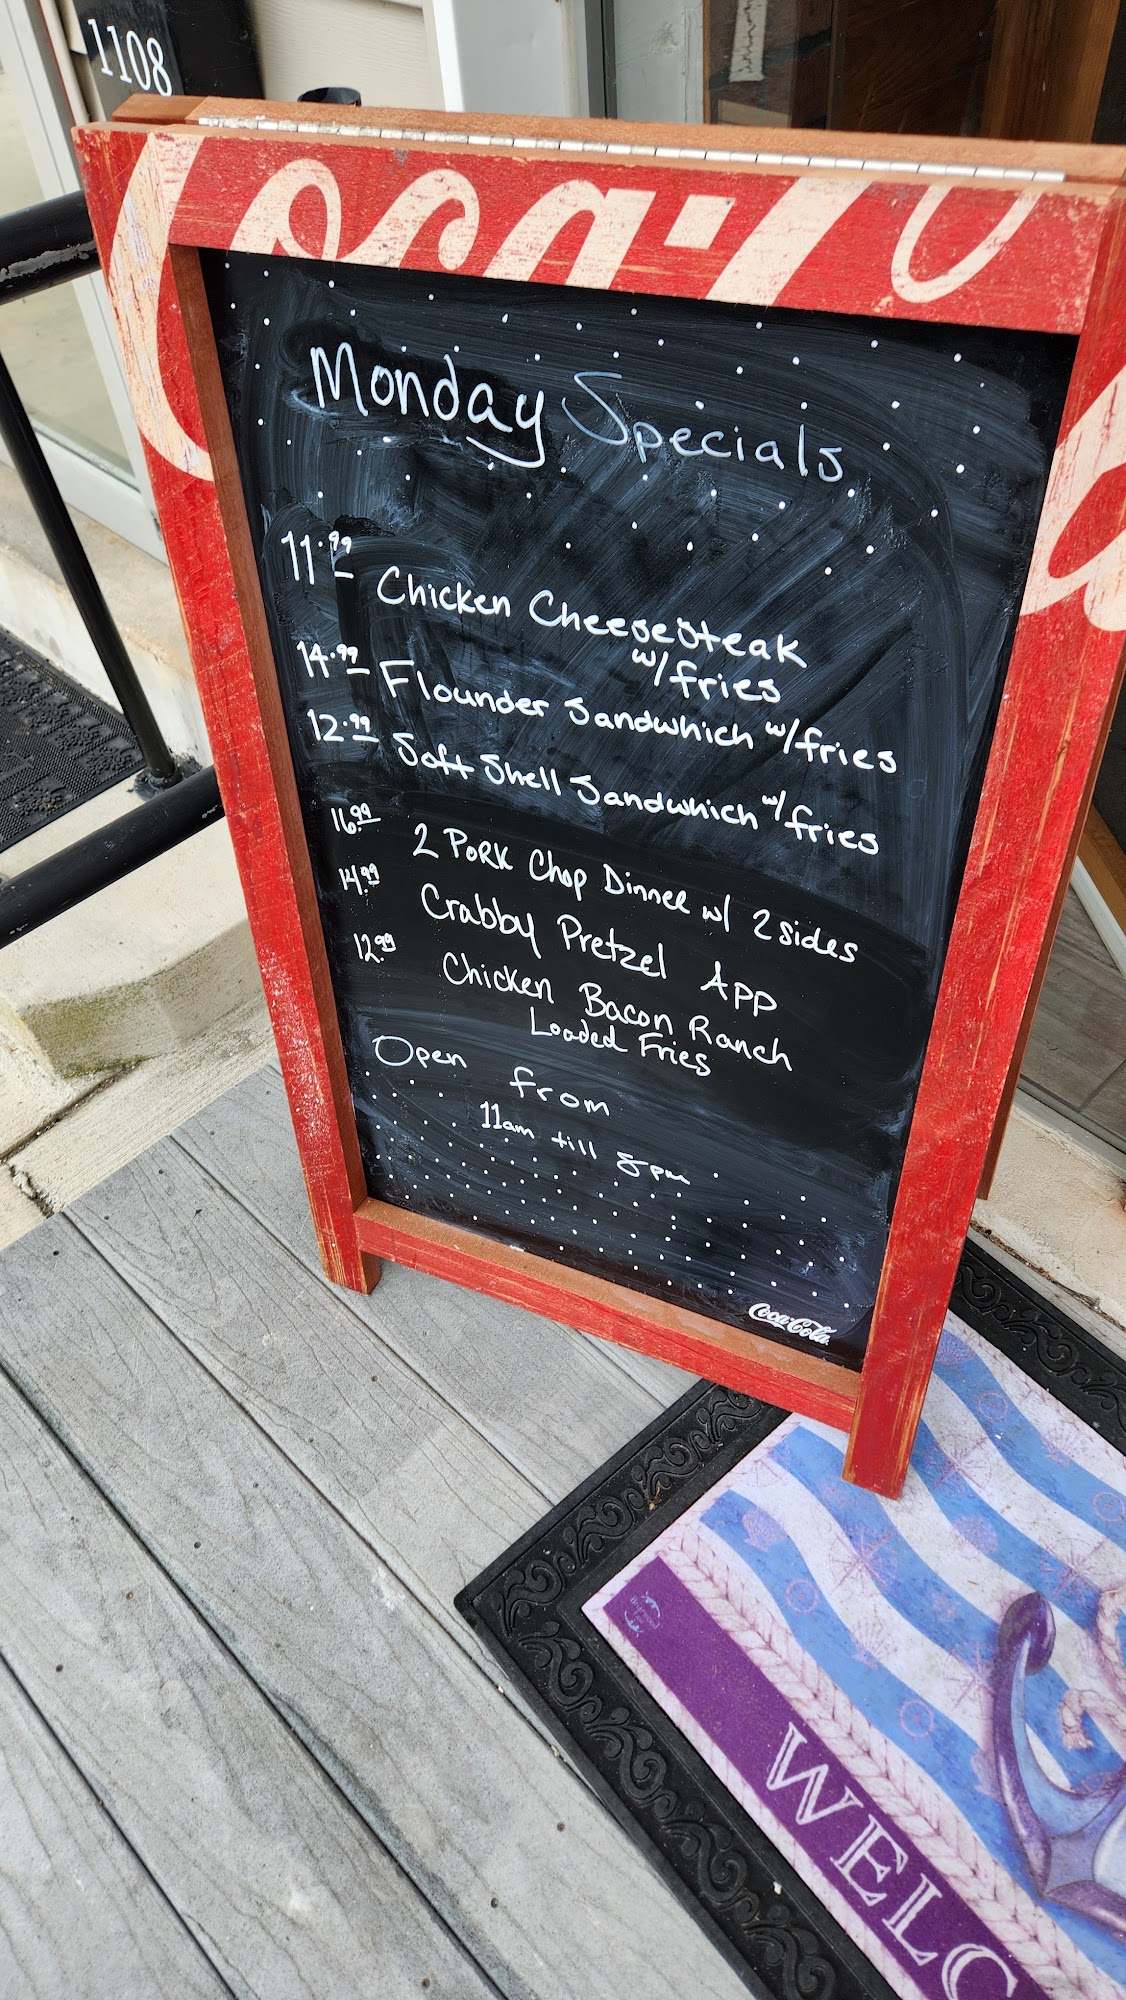 1108
Coca-Co
Monday Specials
11.99 Chicken Cheesesteak
w/fries
14.99 Flounder Sandwhich w/fries
12.99 Soft Shell Sandwhich w/fries
16.99 2 Pork Chop Dinner w/ 2 sides
14.99 Crabby Pretzel App
12.99 Chicken Bacon Ranch
Loaded Fries
Open from
11am till 8pm
Coca-Cola
WELC